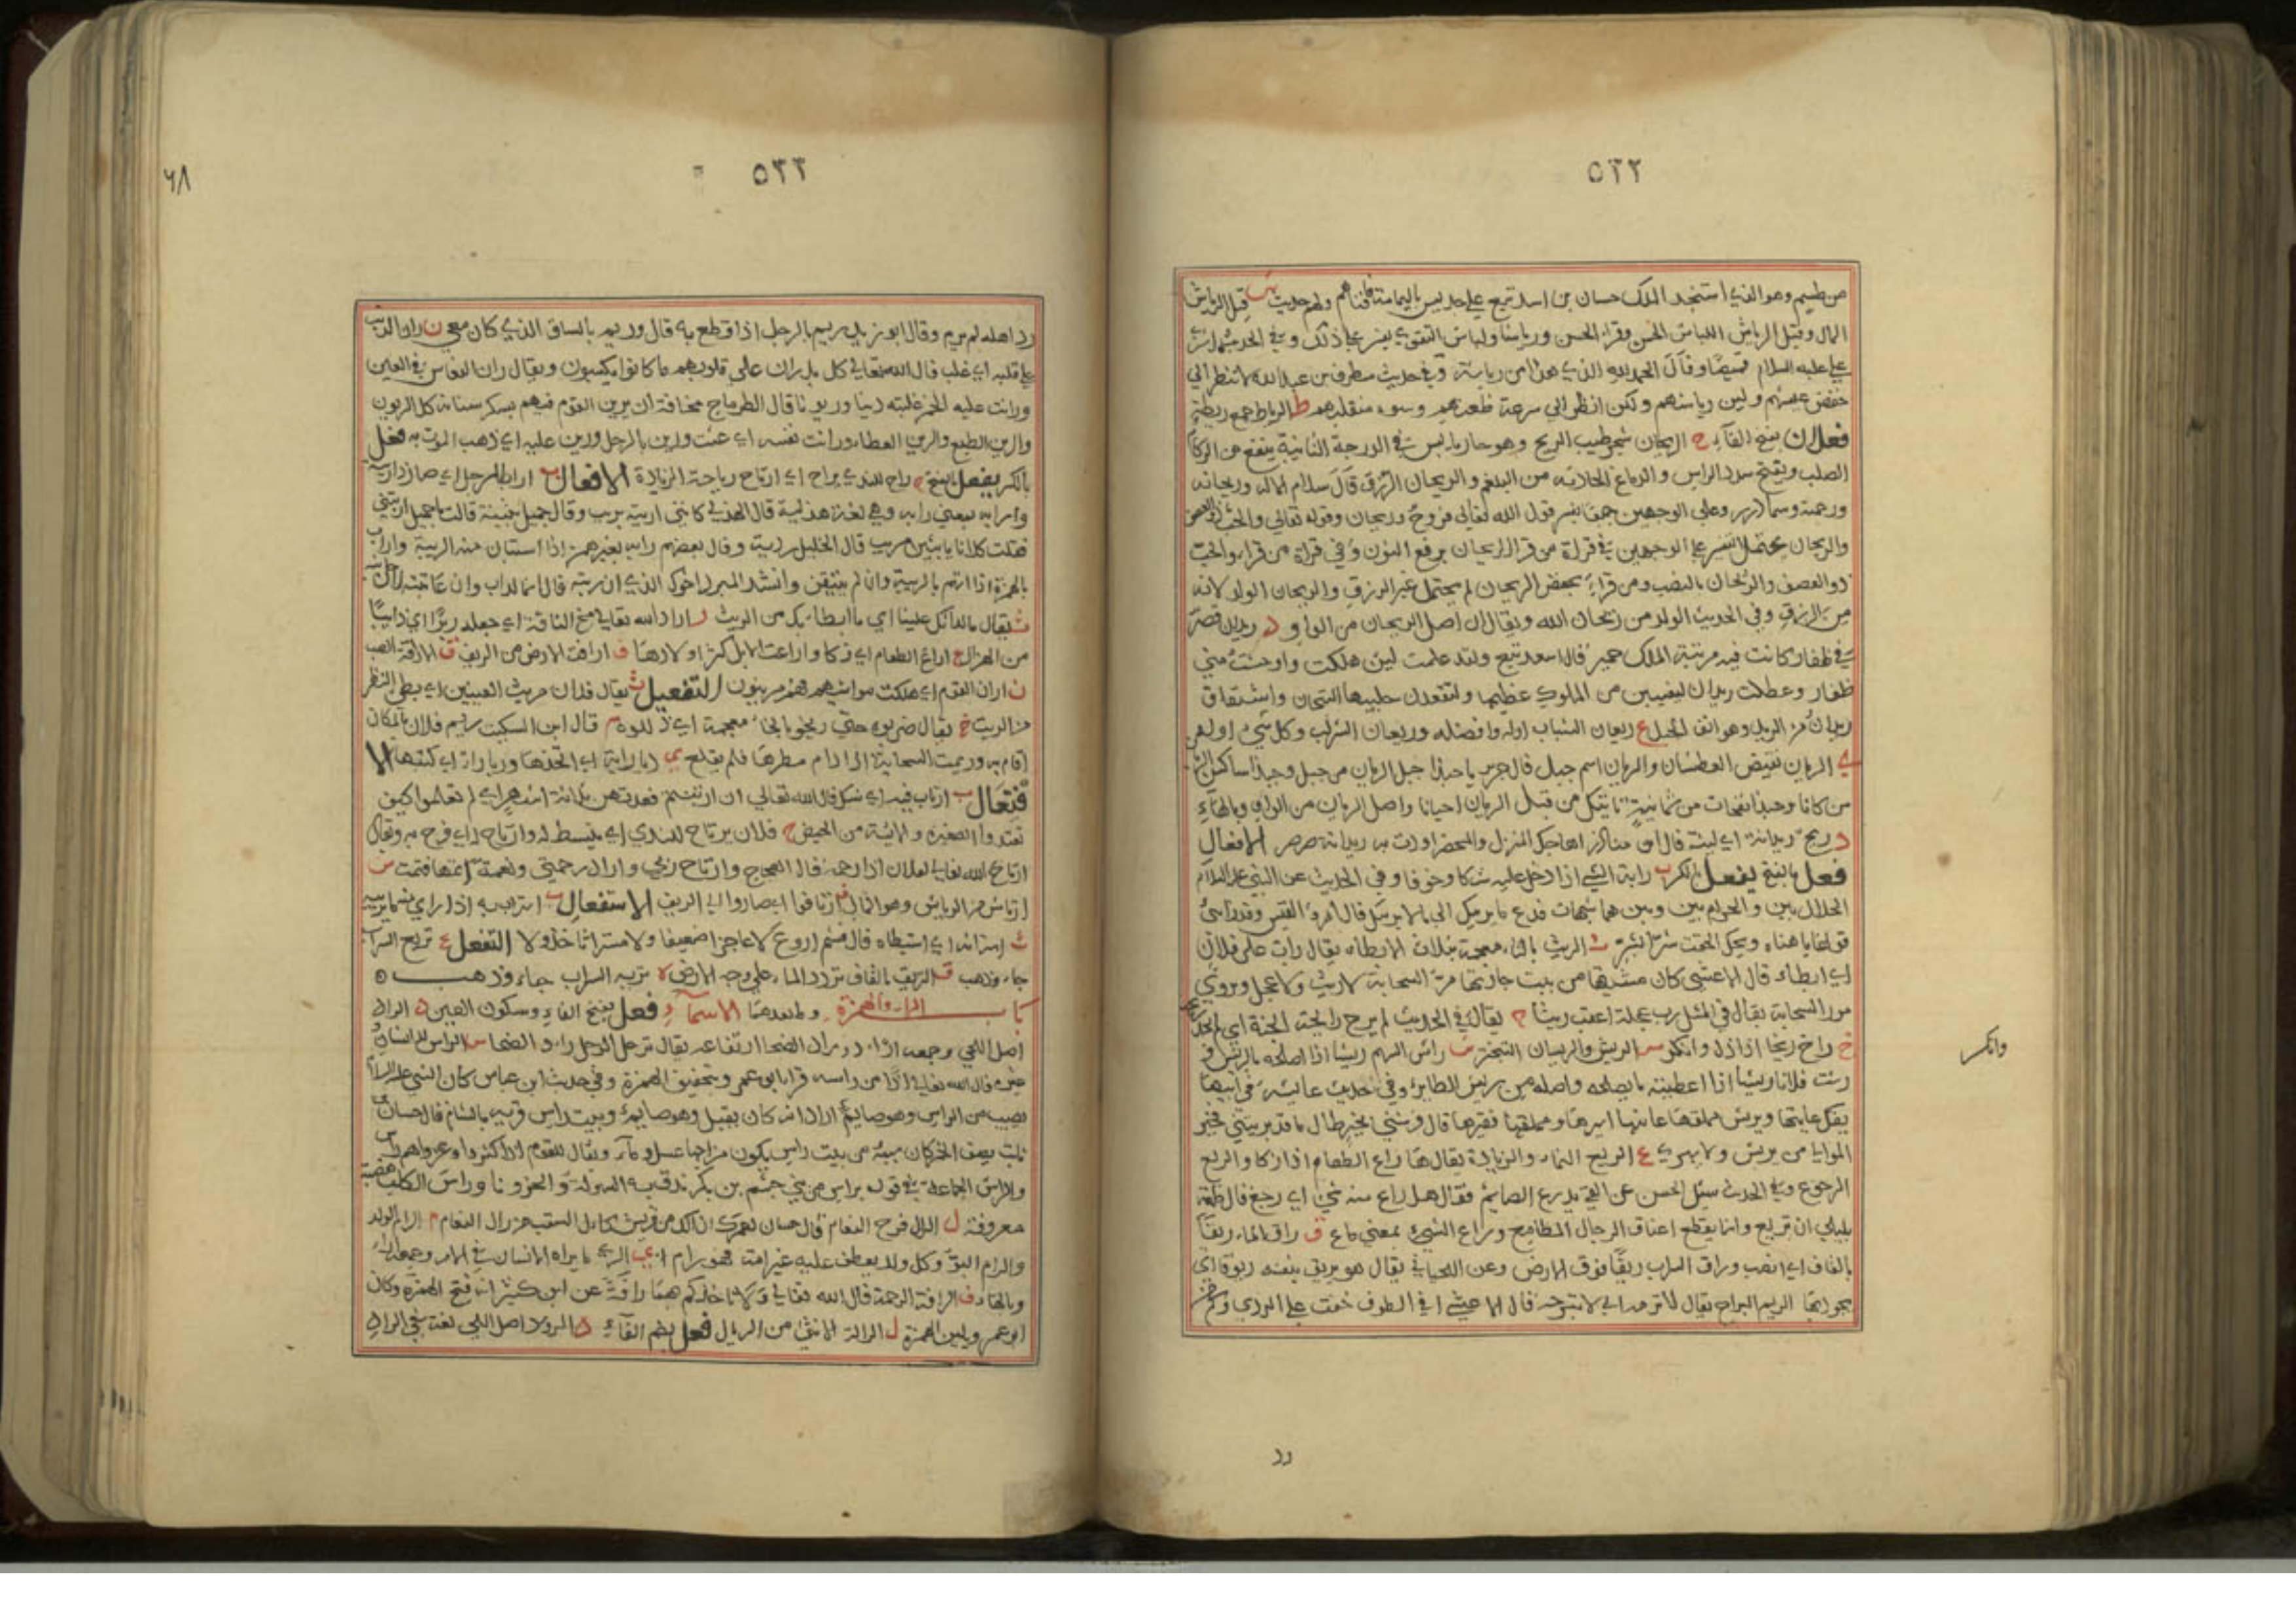 ٥٢٢
من طسم وهو الذي استنجد الملك حسان بن اسعد تبع على جديس باليمامة فأفناهم ولهم حديث ش قيل الرياش
المال وقيل الرياش اللباس الحسن وقراء الحسن ورياشا ولباس التقوى يفسر على ذلك وفي الحديث
على عليه السلام قميصا وقال الحمد لله الذي هذا من رياشه وفي حديث مطرف بن عبد الله لا تنظر الى
خفض عيشهم ولين رياشهم ولكن انظر الى سرعة ظعنهم وسوء منقلبهم ط الرياط جمع ريطة
فعلان بفتح الفاء ح الريحان شجر طيب الريح وهو حار يابس في الدرجة الثانية ينفع من الزكام
الصلب ويفتح سدد الراس والدماغ الحادثة من البلغم والريحان الرزق قال سلام الاله وريحانه
ورحمته وسماء درر وعلى الوجهين جميعا يفسر قول الله تعالى فروح وريحان وقوله تعالى والحب ذو العصف
والريحان يحتمل التفسير على الوجهين في قراة من قرا الريحان برفع النون وفي قراة من قرا والحب
ذو العصف والريحان بالنصب ومن قراء بخفض الريحان لم يحتمل غير الرزق والريحان الولد لانه
من الرزق وفي الحديث الولد من ريحان الله ويقال ان اصل الريحان من الواو د ريدان قصر
في ظفار كانت فيه مرتبة الملك حمير قال اسعد تبع ولقد علمت لئن هلكت واوحشت مني
ظفار وعطلت ريدان ليغيبن من الملوك عظيمها ولتفقدن حليبها التيجان واشتقاق
ريدان من الريد وهو انف الجبل ع ريعان الشباب اوله وافضله وريعان السراب وكل شيء اوله
ي الريان نقيض العطشان والريان اسم جبل قال جرير يا حبذا جبل الريان من جبل وحبذا ساكن الريان
من كانا وحبذا نفحات من يمانية تاتيك من قبل الريان احيانا واصل الريان من الواو وبالهاء
د ريح ريدانة اي لينة قال اهاجك المنزل والمحضر اودت به ريدانة صرصر الافعال
فعل بالفتح يفعل بالكسر ب رابه الشيء اذا دخل عليه شكا وخوفا وفي الحديث عن النبي عليه السلام
الحلال بين والحرام بين وبين هما شبهات فدع ما يريبك الى ما لا يريبك قال امرؤ القيس وقد رابني
قولها يا هناه ويحك الحقت شرا بشر ث الريث بالثاء معجمة بثلاث الابطاء يقال راث على فلان
اي ابطاء قال الاعشى كان مشيتها من بيت جارتها مر السحابة لا ريث ولا عجل ويروى
مور السحابة يقال في المثل رب عجلة اعقبت ريثا ح يقال في الحديث لم يرح رايحة الجنة اي لم يجد ريحها
خ راخ ريخا اذا ذل وانكسر س الريس والريسان التبختر ش راش السهم ريشا اذا اصلحه بالريش و
رشت فلانا ريشا اذا اعطيته ما يصلحه واصله من ريش الطاير وفي حديث عائشة في ابيها
يفك عانيها ويريش مملقها عانيها اسيرها ومملقها فقيرها قال فرشني بخير طال ما قد بريتني فخير
الموالي من يريش ولا يبري ع الريع النماء والزيادة يقال هما راع الطعام اذا زكا والريع
الرجوع وفي الحديث سئل الحسن عن القيء يذرع الصايم فقال هل راع منه شيء اي رجع قال
بليلى ان تريع وانما يقطع اعناق الرجال المطامع وراع الشيء بمعنى ماع ق راق الماء ريقا
بالقاف اي انصب وراق السراب ريقا فوق الارض وعن اللحياني يقال هو يريق بنفسه ريوقا اي
يجود بها الريم البراح يقال لا ترم اي لا تبرح قال الاعشى افي الطوف خفت علي الردى وكم من
وانكسر
رد
٥٢٣
٦٨
رد اهله لم يرم وقال ابو زيد ريم بالرجل اذا قطع به قال وريم بالساق الذي كان معي ن ران الذنب
على قلبه اي غلب قال الله تعالى كلا بل ران على قلوبهم ما كانوا يكسبون ويقال ران النعاس في العين
ورانت عليه الخمر غلبته رينا وريونا قال الطرماح مخافة ان يرين النوم فيهم بسكر سناته كل الريون
والرين الطبع والرين الغطاء ورانت نفسه اي غثت ورين بالرجل ورين عليه اي ذهب الموت به فعل
بالكسر يفعل بالفتح ح راح للندى يراح اي ارتاح رياحة الزيادة الافعال ب اراب الرجل اي صار ذا ريبة
وارابه بمعنى رابه وهي لغة هذلية قال الهذلي كانني اربته بريب وقال جميل بثينة قالت يا جميل اربتني
فقلت كلانا يا بثين مريب قال الخليل رديئة وقال بعضهم رابه بغير همز اذا استبان منه الريبة واراب
بالهمزة اذا اتهم بالريبة وان لم يتيقن وانشد المبرد اخوك الذي ان ربته قال انما اراب وان عاتبته لان جانبه
ث يقال ما اراثك علينا اي ما ابطاء بك من الريث ر ارار الله تعالى مخ الناقة اي جعله ريرا اي ذائبا
من الهزال ع اراع الطعام اي زكا واراعت الابل كثر اولادها ف ارافت الارض من الريف ق الاراقة الصب
ن اران القوم اي هلكت مواشيهم فهم مرينون التفعيل ث يقال فلان مريث العينين اي بطي النظر
من الريث خ يقال ضربوه حتى ريخوه بالخاء معجمة اي ذللوه م قال ابن السكيت ريم فلان بالمكان
اقام به وريمت السحابة اذا دام مطرها فلم يقلع ي ريا راية اي اتخذها وريا راء اي كتبها الا
فتعال ب ارتاب فيه اي شك قال الله تعالى ان ارتبتم فعدتهن ثلاثة اشهر اي لم تعلموا كيف
تعتد والصغيرة والايسة من الحيض ح فلان يرتاح للندى اي ينبسط له وارتاح اي فرح به ويقال
ارتاح الله تعالى لفلان اذا رحمه قال العجاج وارتاح ربي واراد رحمتي ونعمة اتمها فتمت ش
ارتاش من الرياش وهو المال ف ارتافوا اي صاروا الى الريف الاستفعال ب استراب به اذا راى منه ما يريبه
ث استراثه اي استبطاه قال ولا مستراثا خذولا التفعل ع تريع السراب
جاء وذهب ق التريق بالقاف تردد الماء على وجه الارض ه تريه السراب جاء وذهب
كتاب الراء والهمزة وما بعدهما الاسماء فعل بفتح الفاء وسكون العين د الراد
اصل اللحي وجمعه ارءاد وراد الضحا ارتفاعه يقال ترجل الرجل راد الضحا س الراس للانسان
غيره قال الله تعالى من راسه قرا ابو عمرو بتخفيف الهمزة وفي حديث ابن عباس كان النبي عليه السلام
يصيب من الراس وهو صايم اراد انه كان يقبل وهو صايم وبيت راس قرية بالشام قال حسان بن
ثابت يصف الخمر كان سبيئة من بيت راس يكون مزاجها عسل وماء ويقال للقوم اذا كثروا وعزوا هم راس
والراس الجماعة في قوله براس من بني جشم بن بكر ندق به السهولة والحزونا وراس الكلب هضبة
معروفة ل الرال فرخ النعام قال حسان لعمرك ان الك من قريش كال السقب من رال النعام م الرام الولد
والرام البو وكل ولد يعطف عليه غير امه فهو رام ي الراي ما يراه الانسان في الامر وجمعه اراء
وبالهاء ف الرافة الرحمة قال الله تعالى ولا تاخذكم بهما رافة عن ابن كثير انه فتح الهمزة وكان
ابو عمرو يلين الهمزة ل الرالة الانثى من الريال فعل بضم الفاء د الرود اصل اللحي لغة في الراد